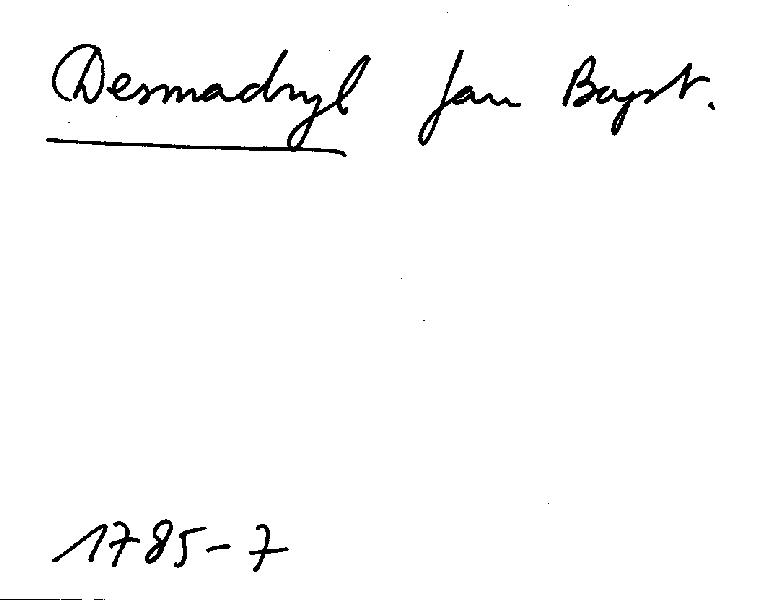 Desmadryl Jan Bapt.
1785-7